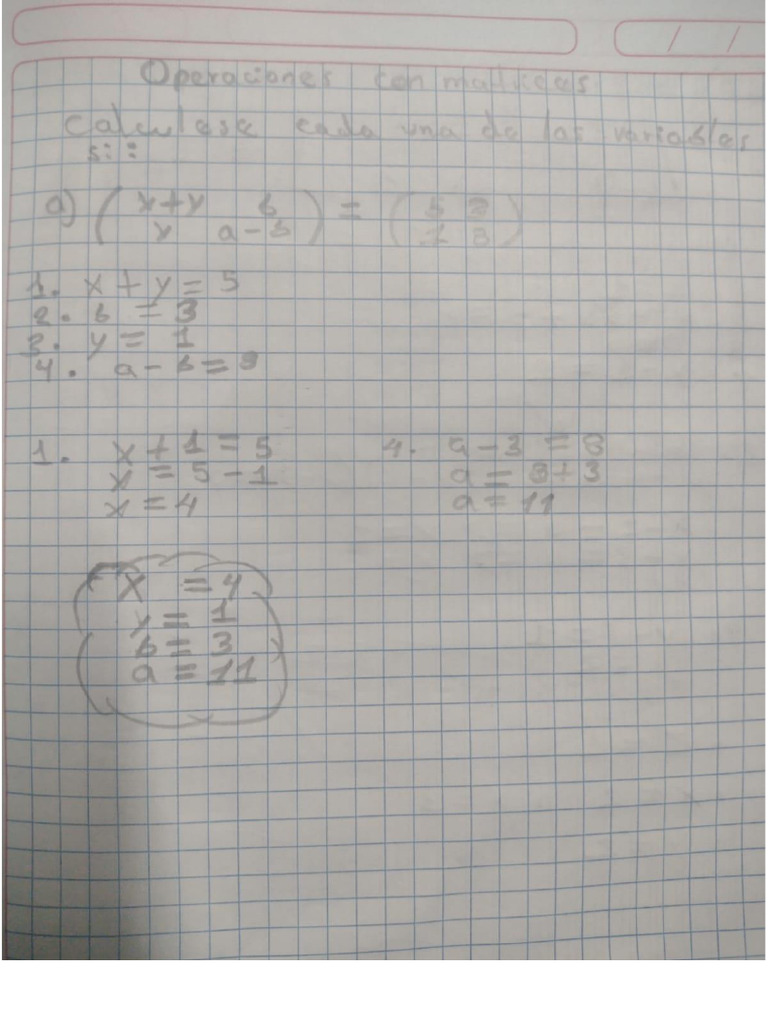 Operaciones con matrices
Calculese cada una de las variables
si:
a) ( x+y b ) = ( 5 3 )
( y a-b ) ( 1 8 )
1. x + y = 5
2. b = 3
3. y = 1
4. a - b = 8
1. x + 1 = 5 4. a - 3 = 8
x = 5 - 1 a = 8 + 3
x = 4 a = 11
x = 4
y = 1
b = 3
a = 11